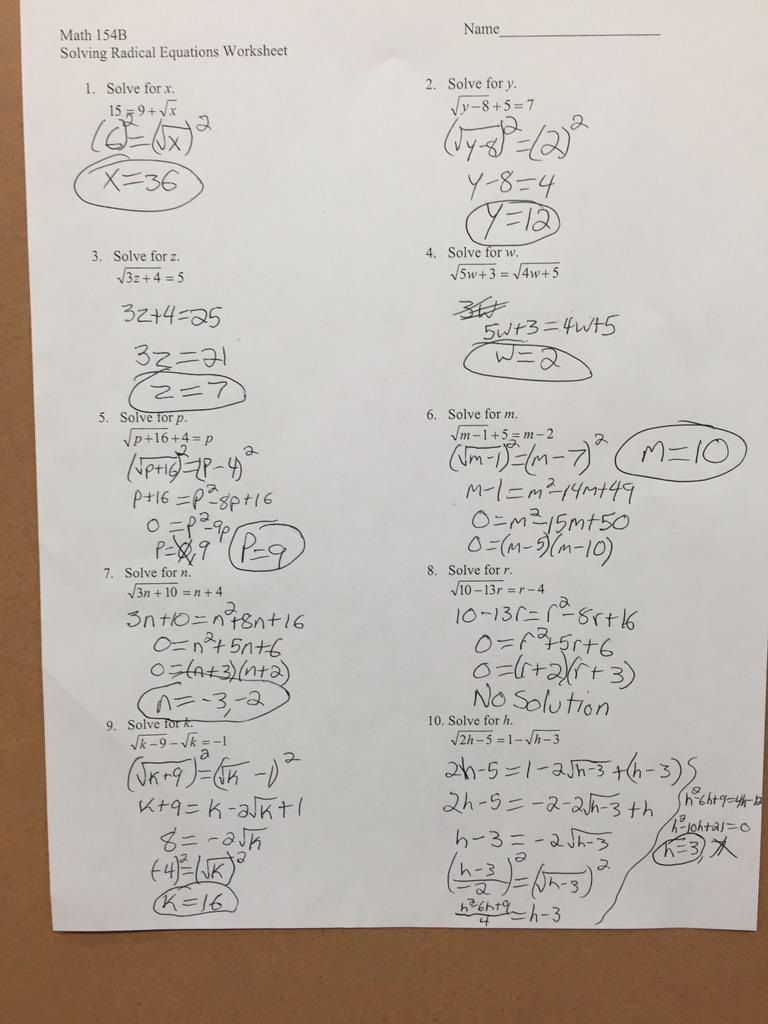 Math 154B
Solving Radical Equations Worksheet
Name
1. Solve for x.
15 = 9 + √x
(6)² = (√x)²
x = 36
2. Solve for y.
√(y−8) + 5 = 7
(√(y−8))² = (2)²
y−8 = 4
y = 12
3. Solve for z.
√(3z+4) = 5
3z+4 = 25
3z = 21
z = 7
4. Solve for w.
√(5w+3) = √(4w+5)
5w+3 = 4w+5
w = 2
5. Solve for p.
√(p+16) + 4 = p
(√(p+16))² = (p−4)²
p+16 = p²−8p+16
0 = p²−9p
p = 0, 9
p = 9
6. Solve for m.
√(m−1) + 5 = m−2
(√(m−1))² = (m−7)²
m−1 = m²−14m+49
0 = m²−15m+50
0 = (m−5)(m−10)
m = 10
7. Solve for n.
√(3n+10) = n+4
3n+10 = n²+8n+16
0 = n²+5n+6
0 = (n+3)(n+2)
n = −3, −2
8. Solve for r.
√(10−13r) = r−4
10−13r = r²−8r+16
0 = r²+5r+6
0 = (r+2)(r+3)
No Solution
9. Solve for k.
√(k−9) − √k = −1
(√(k+9))² = (√k −1)²
k+9 = k−2√k+1
8 = −2√k
(−4)² = (√k)²
k = 16
10. Solve for h.
√(2h−5) = 1−√(h−3)
2h−5 = 1−2√(h−3)+(h−3)
2h−5 = −2−2√(h−3)+h
h−3 = −2√(h−3)
((h−3)/−2)² = (√(h−3))²
(h²−6h+9)/4 = h−3
h²−6h+9 = 4h−12
h²−10h+21 = 0
h = 3,